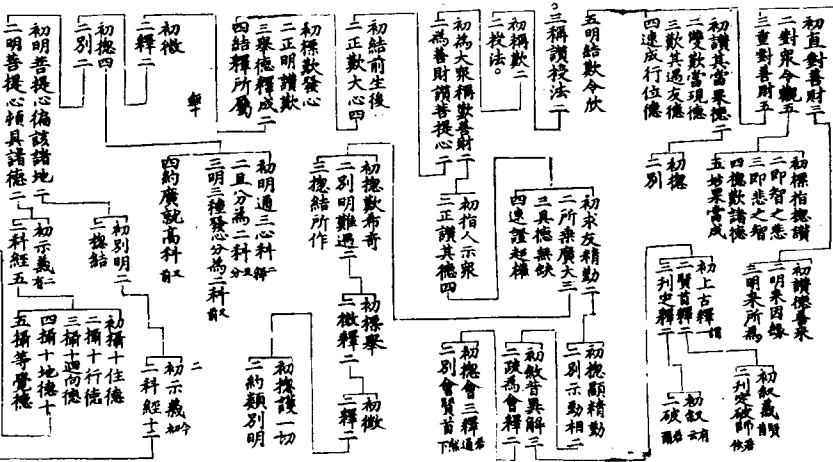 初直對善財三
二對眾令觀五
三重對善財五
初讚其當果德二
二雙歎當現德
三歎其過友德
四速成行位德
五明結歎令欣
三稱讚授法二
初稱歎二
二授法。
初為大眾稱歎善財二
二為善財讚菩提心二
初結前生後
二正歎大心四
初標歎發心
二正明讚歎
三舉德釋成二
四結釋所屬
初徵
二釋二
初總四
二別二
初明菩提心徧該諸地二
二明菩提心頓具諸德二
初標指總讚
二即智之悲
三即悲之智
四總歎諸德
五當果當成
初總
二別
初求友精勤二
二所乘廣大三
三具德無缺
四速證超權
初指人示眾
二正讚其德四
初總歎希奇
二別明難遇二
三總結所作
初明通三心科
二且分為二科
三明三種發心分為二科
四約廣就高科
初別明二
二總結
初示義
二科經五
初讚德善來
二明來因緣
三明來所為
初上古釋
二賢首釋二
三刊定釋二
初總顯精勤
二別示勤相二
初敘昔異解三
二疏為會釋二
初總會三釋
二別會賢首
初標舉
二徵釋二
初徵
二釋二
初總護一切
二約類別明
初示義
二科經十二
初攝十住德
二攝十行德
三攝十迴向德
四攝十地德十
五攝等覺德
初敘義
二刊定破師
初敘
二破